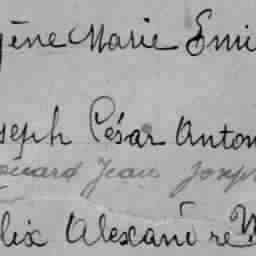 gène Marie Emi
seph César Anton
ouard Jean Joseph
lix Alexandre